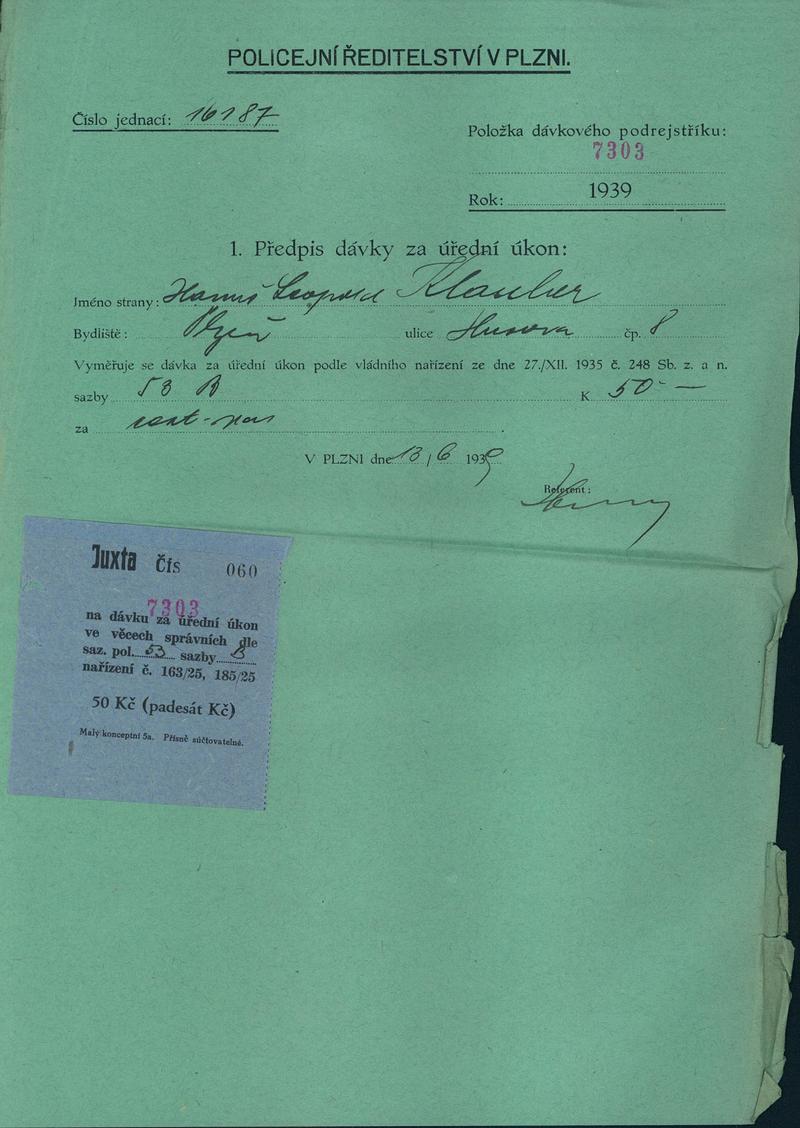 POLICEJNÍ ŘEDITELSTVÍ V PLZNI.
Číslo jednací: 16187
Položka dávkového podrejstříku:
7303
Rok: 1939
1. Předpis dávky za úřední úkon:
Jméno strany: Hanuš Leopold Klauber
Bydliště: Plzeň ulice Husova čp. 8
Vyměřuje se dávka za úřední úkon podle vládního nařízení ze dne 27./XII. 1935 č. 248 Sb. z. a n.
sazby 53 B K 50·—
za cest. pas.
V PLZNI dne 13/6 1939.
Referent:
Juxta Čís 060
7303
na dávku za úřední úkon
ve věcech správních dle
saz. pol. 53 sazby B
nařízení č. 163/25, 185/25
50 Kč (padesát Kč)
Malý konceptní 5a. Přísně súčtovatelné.